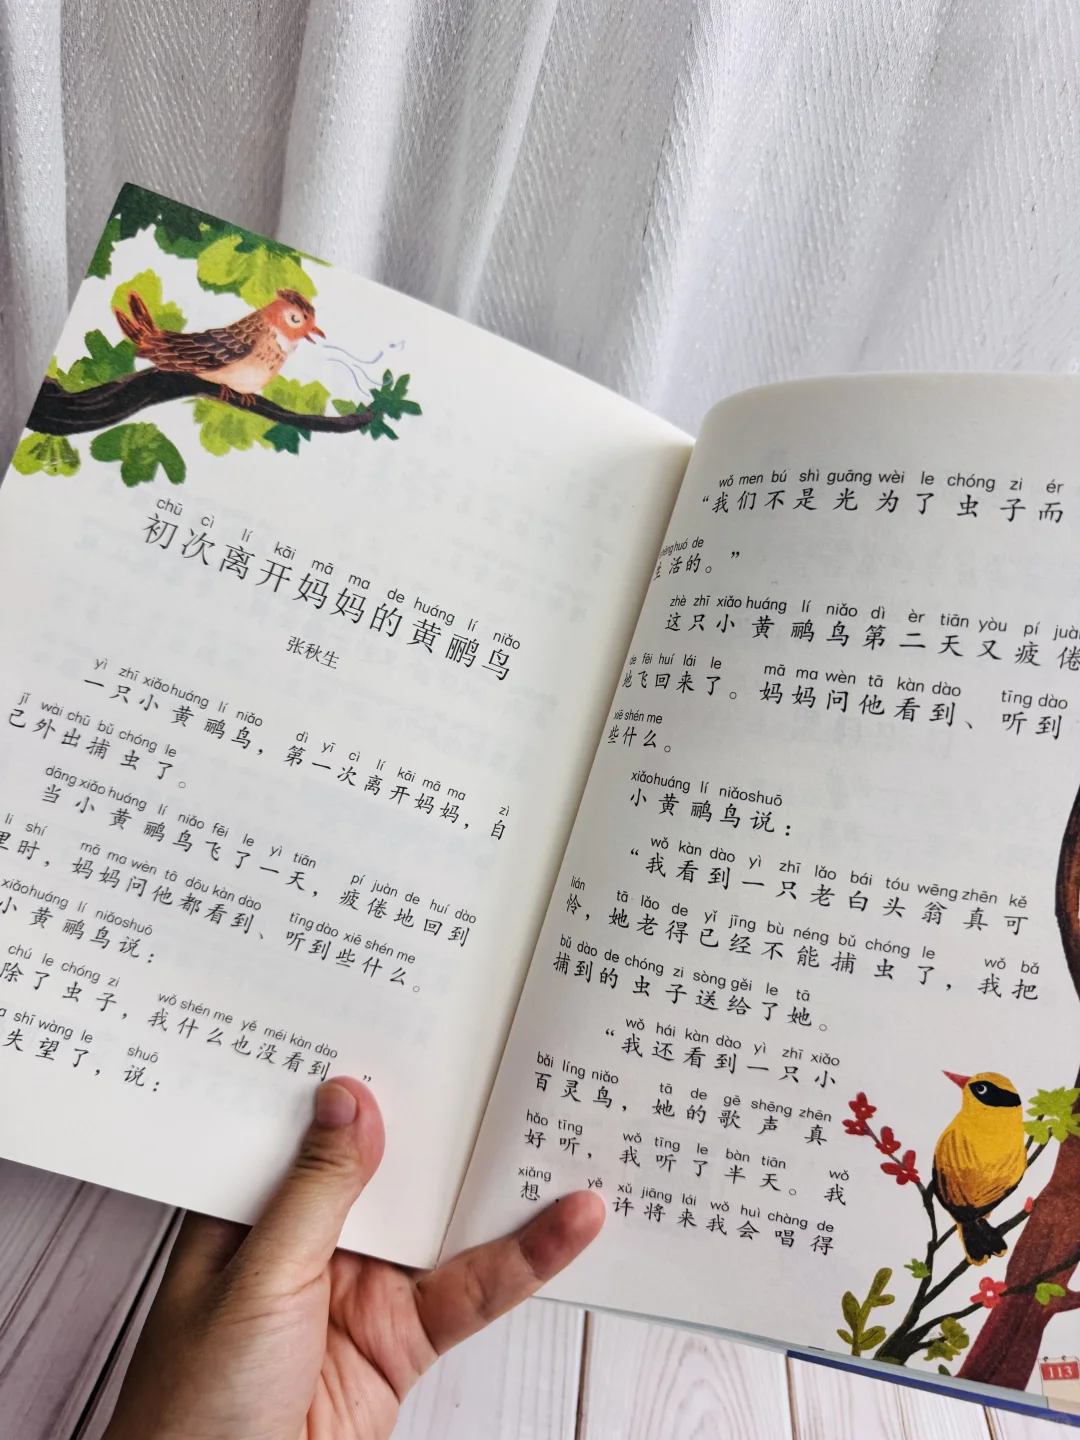 chū cì lí kāi mā ma de huáng lí niǎo
初次离开妈妈的黄鹂鸟
张秋生
yì zhī xiǎo huáng lí niǎo dì yī cì lí kāi mā ma zì
一只小黄鹂鸟，第一次离开妈妈，自
jǐ wài chū bǔ chóng le
己外出捕虫了。
dāng xiǎo huáng lí niǎo fēi le yì tiān pí juàn de huí dào
当小黄鹂鸟飞了一天，疲倦地回到
li shí mā ma wèn tā dōu kàn dào tīng dào xiē shén me
里时，妈妈问他都看到、听到些什么。
xiǎo huáng lí niǎo shuō
小黄鹂鸟说：
chú le chóng zi wǒ shén me yě méi kàn dào
除了虫子，我什么也没看到。”
shī wàng le shuō
失望了，说：
wǒ men bú shì guāng wèi le chóng zi ér
“我们不是光为了虫子而
huó de
生活的。”
zhè zhī xiǎo huáng lí niǎo dì èr tiān yòu pí juàn
这只小黄鹂鸟第二天又疲倦
de fēi huí lái le mā ma wèn tā kàn dào tīng dào
地飞回来了。妈妈问他看到、听到
xiē shén me
些什么。
xiǎo huáng lí niǎo shuō
小黄鹂鸟说：
wǒ kàn dào yì zhī lǎo bái tóu wēng zhēn kě
“我看到一只老白头翁真可
lián tā lǎo de yǐ jīng bù néng bǔ chóng le wǒ bǎ
怜，她老得已经不能捕虫了，我把
bǔ dào de chóng zi sòng gěi le tā
捕到的虫子送给了她。
wǒ hái kàn dào yì zhī xiǎo
“我还看到一只小
bǎi líng niǎo tā de gē shēng zhēn
百灵鸟，她的歌声真
hǎo tīng wǒ tīng le bàn tiān wǒ
好听，我听了半天。我
xiǎng yě xǔ jiāng lái wǒ huì chàng de
想，许将来我会唱得
113